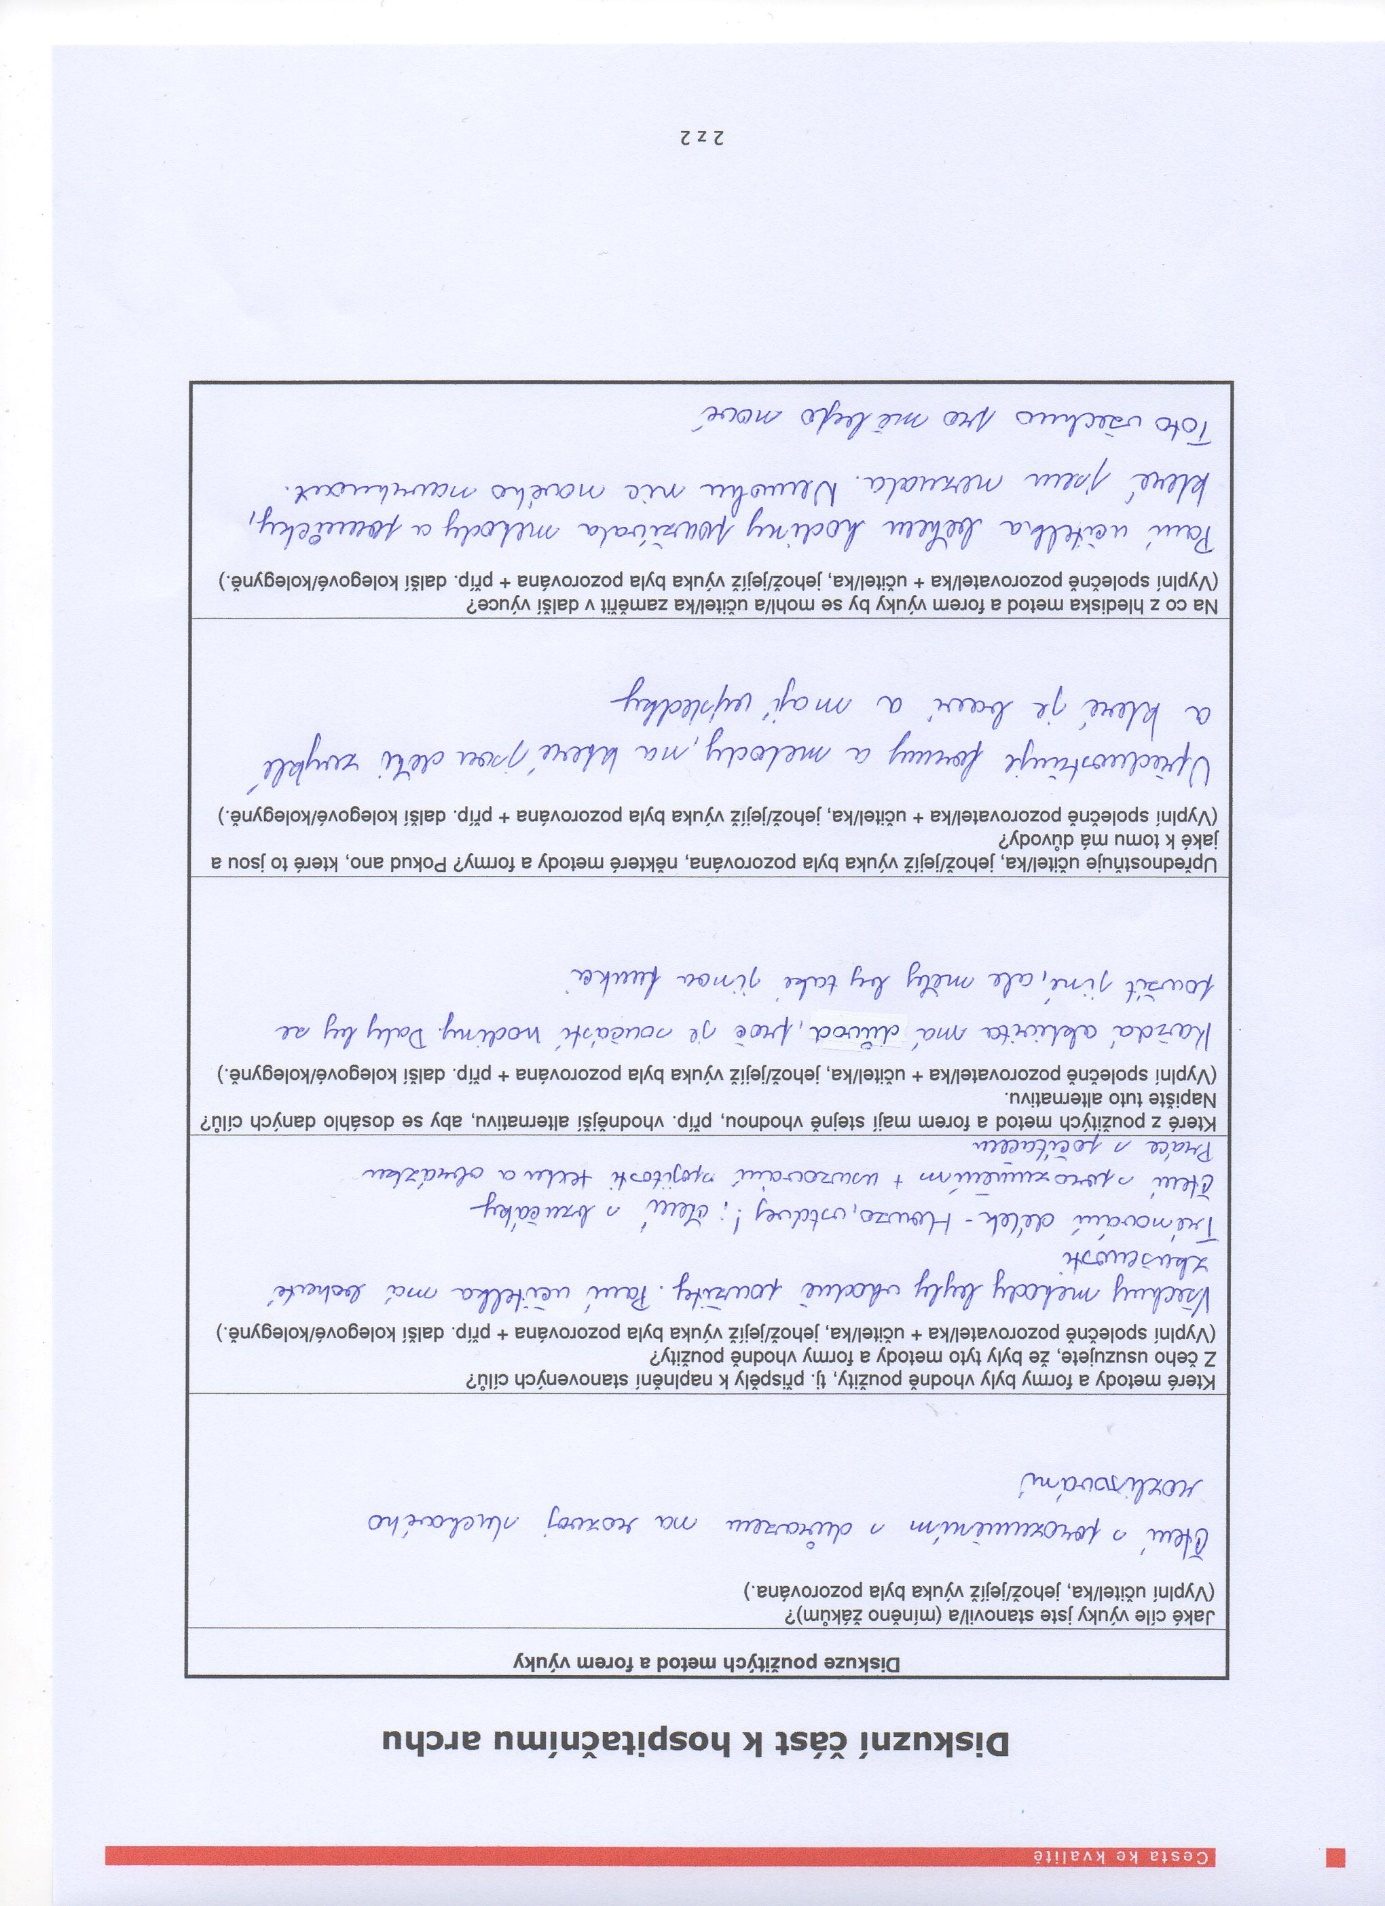 Cesta ke kvalitě
Diskuzní část k hospitačnímu archu
Diskuze použitých metod a forem výuky
Jaké cíle výuky jste stanovil/a (míněno žákům)?
(Vyplní učitel/ka, jehož/jejíž výuka byla pozorována.)
Čtení s porozuměním s důrazem na rozvoj sluchového
rozlišování
Které metody a formy byly vhodně použity, tj. přispěly k naplnění stanovených cílů?
Z čeho usuzujete, že byly tyto metody a formy vhodně použity?
(Vyplní společně pozorovatel/ka + učitel/ka, jehož/jejíž výuka byla pozorována + příp. další kolegové/kolegyně.)
Všechny metody byly vhodně použity. Paní učitelka má bohaté
zkušenosti
Trénování délek - Honzo, vstávej!; čtení s bzučáky
Čtení s porozuměním + usuzování spojitosti textu a obrázku
Práce s počítačem
Které z použitých metod a forem mají stejně vhodnou, příp. vhodnější alternativu, aby se dosáhlo daných cílů?
Napište tuto alternativu.
(Vyplní společně pozorovatel/ka + učitel/ka, jehož/jejíž výuka byla pozorována + příp. další kolegové/kolegyně.)
Každá aktivita má důvod, proč je součástí hodiny. Daly by se
použít jiné, ale měly by také jinou funkci
Upřednostňuje učitel/ka, jehož/jejíž výuka byla pozorována, některé metody a formy? Pokud ano, které to jsou a
jaké k tomu má důvody?
(Vyplní společně pozorovatel/ka + učitel/ka, jehož/jejíž výuka byla pozorována + příp. další kolegové/kolegyně.)
Upřednostňuje formy a metody, na které jsou děti zvyklé
a které je baví a mají výsledky
Na co z hlediska metod a forem výuky by se mohl/a učitel/ka zaměřit v další výuce?
(Vyplní společně pozorovatel/ka + učitel/ka, jehož/jejíž výuka byla pozorována + příp. další kolegové/kolegyně.)
Paní učitelka během hodiny používala metody a pomůcky,
které jsem neznala. Nemohu nic nového navrhnout.
Toto všechno pro mě bylo nové
2 z 2